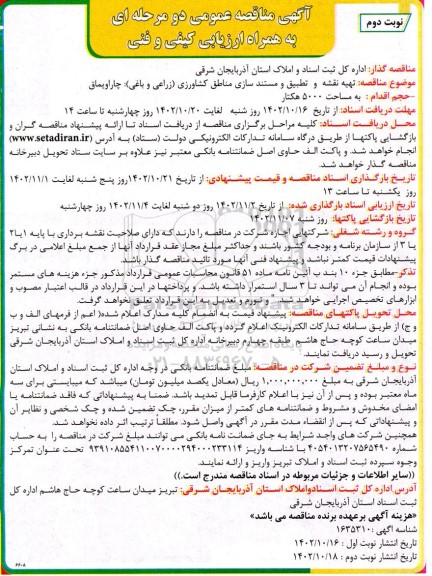 نوبت دوم
آگهی مناقصه عمومی دو مرحله ای
به همراه ارزیابی کیفی و فنی
مناقصه گذار: اداره کل ثبت اسناد و املاک استان آذربایجان شرقی
موضوع مناقصه: تهیه نقشه و تطبیق و مستند سازی مناطق کشاورزی (زراعی و باغی): چاراویماق
-حجم اقدام : به مساحت ۵۰۰۰ هکتار
مهلت دریافت اسناد: از تاریخ ۱۴۰۲/۱۰/۱۶ روز شنبه لغایت ۱۴۰۲/۱۰/۲۰ روز چهارشنبه تا ساعت ۱۴
محل دریافت اسناد: کلیه مراحل برگزاری مناقصه از دریافت اسناد تا ارائه پیشنهاد مناقصه گران و
بازگشایی پاکتها از طریق درگاه سامانه تدارکات الکترونیکی دولت (ستاد) به آدرس (www.setadiran.ir)
انجام خواهد شد. و پاکت الف حاوی اصل ضمانتنامه بانکی معتبر نیز علاوه بر سایت ستاد تحویل دبیرخانه
مناقصه گذار خواهد شد.
تاریخ بارگذاری اسناد مناقصه و قیمت پیشنهادی: از تاریخ ۱۴۰۲/۱۰/۲۱ روز پنج شنبه لغایت ۱۴۰۲/۱۱/۱
روز یکشنبه تا ساعت ۱۳
تاریخ ارزیابی اسناد بارگذاری شده: از تاریخ ۱۴۰۲/۱۱/۲ روز دو شنبه لغایت ۱۴۰۲/۱۱/۴ روز چهارشنبه
تاریخ بازگشایی پاکتها: روز شنبه ۱۴۰۲/۱۱/۰۷
گروه و رشته شغلی: شرکتهایی اجازه شرکت در مناقصه را دارند که دارای صلاحیت نقشه برداری با پایه ۱یا۲
یا ۳ از سازمان برنامه و بودجه کشور باشند و حداکثر مبلغ مجاز عقد قرارداد آنها از جمع مبلغ اعلامی در برگ
پیشنهادات قیمت کمتر نباشد و پیشنهاد فنی آنها مورد تائید مناقصه گذار باشد.
تذکر-مطابق جزء ۱۰ بند ب آئین نامه ماده ۵۱ قانون محاسبات عمومی قرارداد مذکور جزء هزینه های مستمر
بوده و انجام آن می تواند تا ۳ سال استمرار داشته باشد. و پرداختها در این قرارداد در قالب اعتبار مصوب و
ابزارهای تخصیص اجرایی خواهد شد و تورم و تعدیل به این قرارداد تعلق نخواهد گرفت.
محل تحویل پاکتهای مناقصه: پیشنهاد قیمت به انضمام کلیه مدارک اعلام شده( اعم از فرمهای الف و ب
و ج) از طریق سامانه تدارکات الکترونیک اعلام گردد و پاکت الف حاوی اصل ضمانتنامه بانکی به نشانی تبریز
میدان ساعت کوچه حاج هاشم طبقه چهارم دبیرخانه اداره کل ثبت اسناد و املاک استان آذربایجان شرقی
تحویل و رسید دریافت نمایند.
نوع و مبلغ تضمین شرکت در مناقصه: مبلغ ضمانتنامه بانکی در وجه اداره کل ثبت اسناد و املاک استان
آذربایجان شرقی به مبلغ ۱٫۰۰۰٫۰۰۰٫۰۰۰ ریال (معادل یکصد میلیون تومان) میباشد که میبایستی برای سه
ماه معتبر بوده و پس از آن نیز با اعلام کارفرما قابل تمدید باشد. ضمنا به پیشنهاداتی که فاقد ضمانتنامه یا
امضای مخدوش و مشروط و ضمانتنامه های کمتر از میزان مقرر، چک تضمین شده و چک شخصی و نظایر آن
و پیشنهاداتی که پس از انقضاء مدت مقرر در آگهی واصل شود. مطلقاً ترتیب اثر داده نخواهد شد.
همچنین شرکت های واجد شرایط به جای ضمانت نامه بانکی می توانند مبلغ شرکت در مناقصه را به حساب
وجوه سپرده ثبت اسناد و املاک تبریز واریز و ارائه نمایند.
((سایر اطلاعات و جزئیات مربوطه در اسناد مناقصه مندرج است.))
آدرس اداره کل ثبت اسنادواملاک استان آذربایجان شرقی: تبریز میدان ساعت کوچه حاج هاشم اداره کل
ثبت اسناد استان آذربایجان شرقی
«هزینه آگهی برعهده برنده مناقصه می باشد»
شناسه آگهی : ۱۶۳۵۳۱۰
تاریخ انتشار نوبت اول : ۱۴۰۲/۱۰/۱۶
تاریخ انتشار نوبت دوم : ۱۴۰۲/۱۰/۱۸
۶۶۰۸